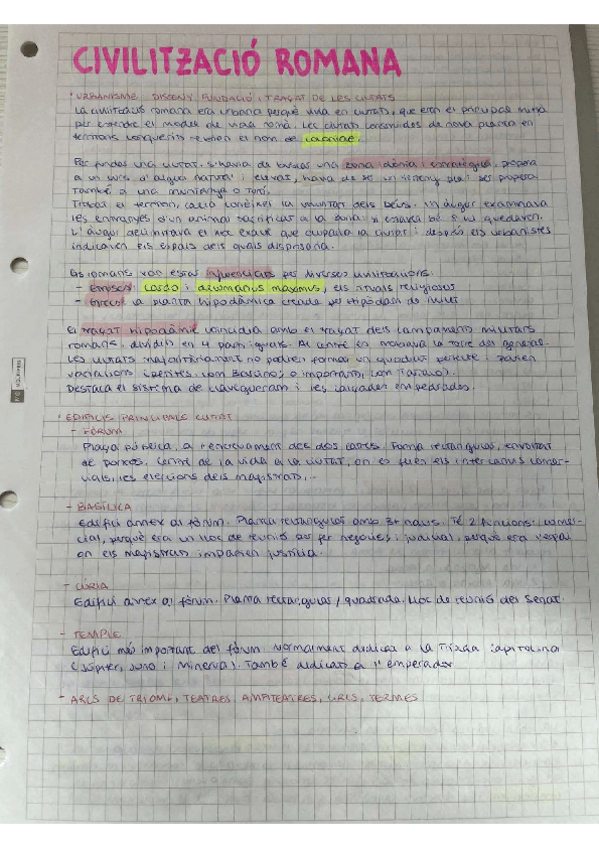 CIVILITZACIÓ ROMANA
· URBANISME: DISSENY, FUNDACIÓ I TRAÇAT DE LES CIUTATS
La civilització romana era urbana perquè vivia en ciutats, que eren el principal mitjà
per estendre el model de vida romà. Les ciutats construïdes de nova planta en
territoris conquerits rebien el nom de colòniae.
Per fundar una ciutat, s'havia de buscar una zona idònia i estratègica, propera
a un curs d'aigua natural i elevat, havia de ser un terreny pla i ser propera
també a una muntanya o turó.
Triat el terreny, calia conèixer la voluntat dels déus. Un àugur examinava
les entranyes d'un animal sacrificat a la zona si estava bé s'hi quedaven.
L'àugur delimitava el nou espai que ocuparia la ciutat i després els urbanistes
indicaven els espais dels quals disposaria.
Els romans van estar influenciats per diverses civilitzacions:
- Etrusca: Cardo i decumanus maximus, els rituals religiosos
- Grega: la planta hipodàmica creada per Hipòdam de Milet
El traçat hipodàmic coincidia amb el traçat dels campaments militars
romans, dividits en 4 parts iguals. Al centre en marcava la torre del general.
Les ciutats majoritàriament no podien formar un quadrat perfecte i tenien
variacions (petites, com Barcino; o importants, com Tarraco).
Destaca el sistema de clavegueram i les calçades empedrades.
· EDIFICIS PRINCIPALS CIUTAT
- FÒRUM
Plaça pública, a l'encreuament dels dos carrers. Forma rectangular, envoltat
de pòrtics. Centre de la vida a la ciutat, on es fan els intercanvis comer-
cials, les eleccions dels magistrats...
- BASÍLICA
Edifici annex al fòrum. Planta rectangular amb 3+ naus. Té 2 funcions: comer-
cial, perquè era un lloc de reunió per fer negocis; i judicial, perquè era l'espai
on els magistrats impartien justícia.
- CÚRIA
Edifici annex al fòrum. Planta rectangular/quadrada. Lloc de reunió del Senat.
- TEMPLE
Edifici més important del fòrum. Normalment dedicat a la Tríada Capitolina
(Júpiter, Juno i Minerva). També dedicats a l'emperador
- ARCS DE TRIOMF, TEATRES, AMFITEATRES, CIRCS, TERMES